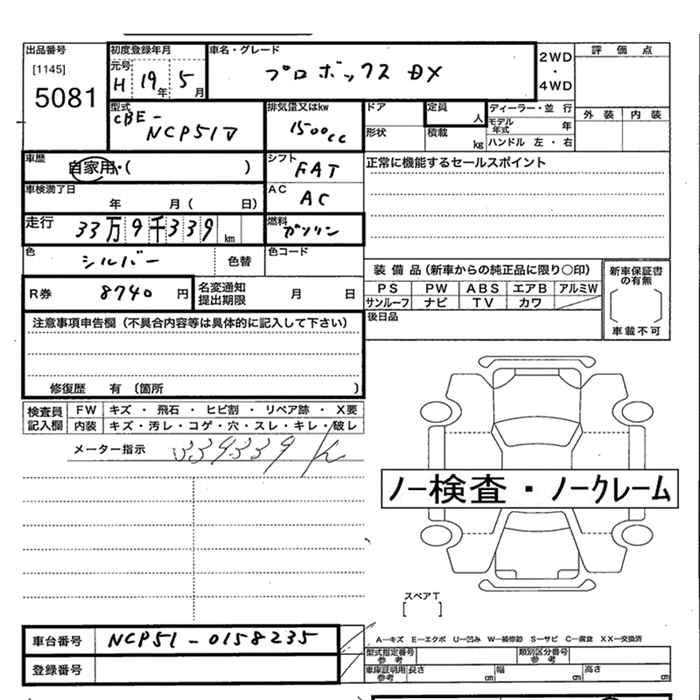 出品番号 初度登録年月 車名・グレード 2WD 評価点
[1145] 元号 ・
5081 H 19年 5月 プロボックス DX 4WD
型式 排気量又はkw ドア 定員 人 ディーラー・並行 外装 内装
CBE- 1500cc モデル年式 年
NCP51V 形状 積載 kg ハンドル 左・右
車歴 自家用・( ) シフト FAT 正常に機能するセールスポイント
車検満了日 年 月( 日) AC AC
走行 33万9千339km 燃料 ガソリン
色 シルバー 色替 色コード
装備品(新車からの純正品に限り○印) 新車保証書の有無
R券 8740円 名変通知提出期限 月 日 PS PW ABS エアB アルミW
サンルーフ ナビ TV カワ [ ]
注意事項申告欄(不具合内容等は具体的に記入して下さい) 後日品 車載不可
修復歴 有 (箇所 )
検査員記入欄 FW キズ・飛石・ヒビ割・リペア跡・X要
内装 キズ・汚レ・コゲ・穴・スレ・キレ・破レ
メーター指示 339339 K
ノー検査・ノークレーム
スペアT
[ ]
車台番号 NCP51-0158235 A-キズ E-エクボ U-凹み W-補修跡 S-サビ C-腐食 XX-交換済
型式指定番号 参考 類別区分番号 参考
登録番号 車庫証明用 参考 長さ cm 幅 cm 高さ cm